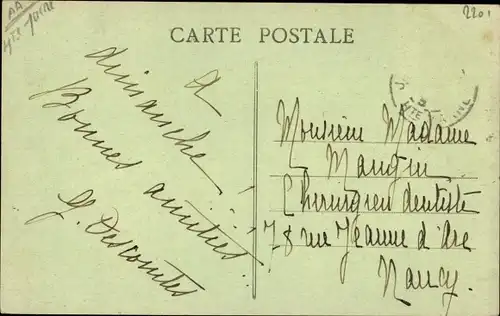 2201
CARTE POSTALE
A
dimanche
Bonnes amitiés!
Monsieur Madame
Mangin
Chirurgien dentiste
78 rue Jeanne d'Arc
Nancy.